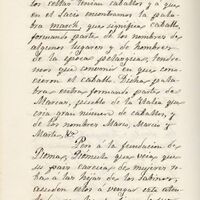 los celtas tenian caballos y á que
en el Lacio encontramos la pala-
bra march, que significa caballo,
formando parte de los nombres de
algunos lugares y de hombres
de la época pelásgica, tendre-
mos que convenir en que cono-
cieron el caballo. Dicha pala-
bra entra formando parte de
Marcas, pueblo de la Italia que
cria gran número de caballos, y
de los nombres Marco, Marcio y
Martin, &c.
Pero á la fundacion de
Roma, Rómulo que veia que
su pais carecia de mujeres ro-
ba á las hijas de los Sabinos;
acuden estos á vengar esta afren-